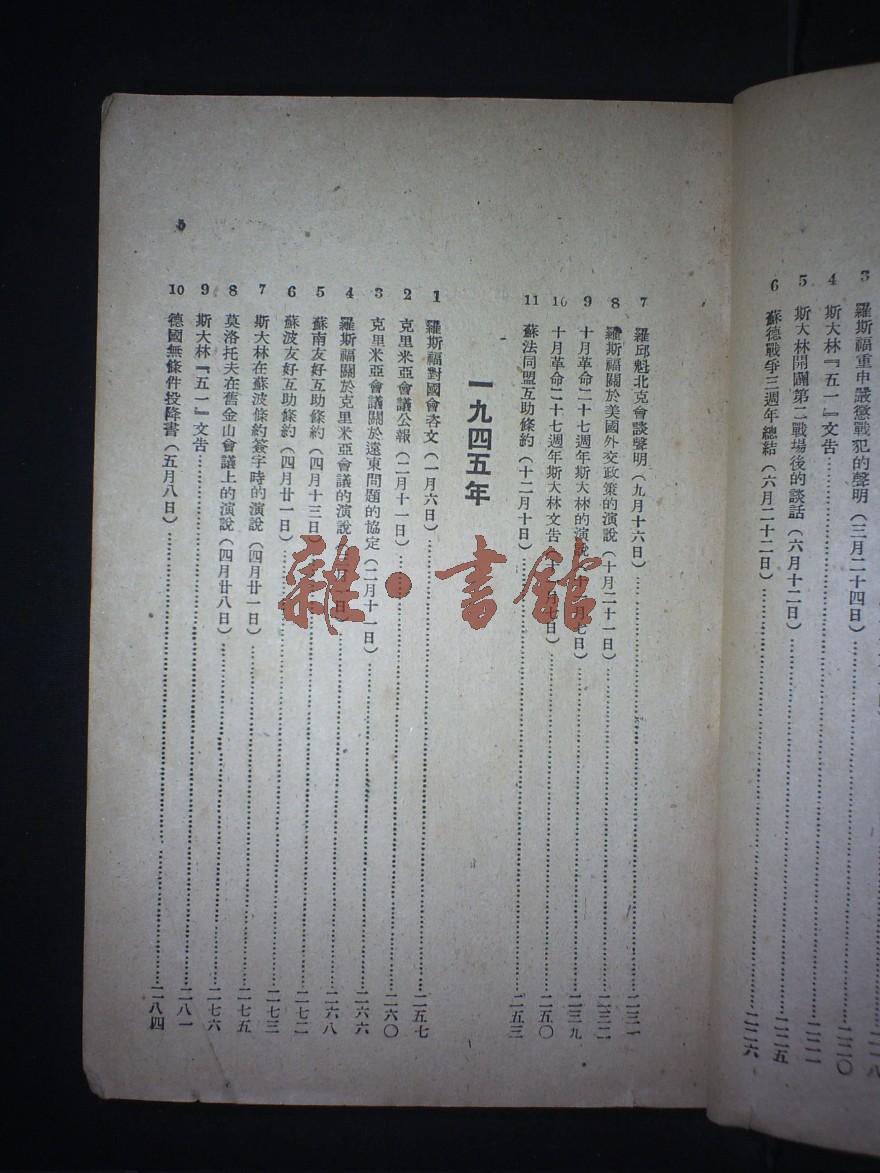 3 羅斯福重申嚴懲戰犯的聲明(三月二十四日)
4 斯大林『五一』文告……二二〇
5 斯大林開闢第二戰場後的談話(六月十二日)
6 蘇德戰爭三週年總結(六月二十二日)……二二六
7 羅邱魁北克會談聲明(九月十六日)……二三一
8 羅斯福關於美國外交政策的演說(十月二十一日)……二三二
9 十月革命二十七週年斯大林的演說(十一月七日)……二三九
10 十月革命二十七週年斯大林文告(十一月七日)……二五〇
11 蘇法同盟互助條約(十二月十日)……二五三
一九四五年
1 羅斯福對國會咨文(一月六日)……二五七
2 克里米亞會議公報(二月十一日)……二六〇
3 克里米亞會議關於遠東問題的協定(二月十一日)……二六六
4 羅斯福關於克里米亞會議的演說……二六八
5 蘇南友好互助條約(四月十三日)……二七二
6 蘇波友好互助條約(四月廿一日)……二七三
7 斯大林在蘇波條約簽字時的演說(四月廿一日)……二七五
8 莫洛托夫在舊金山會議上的演說(四月廿八日)……二七六
9 斯大林『五一』文告……二八一
10 德國無條件投降書(五月八日)……二八四
5
雜·書館